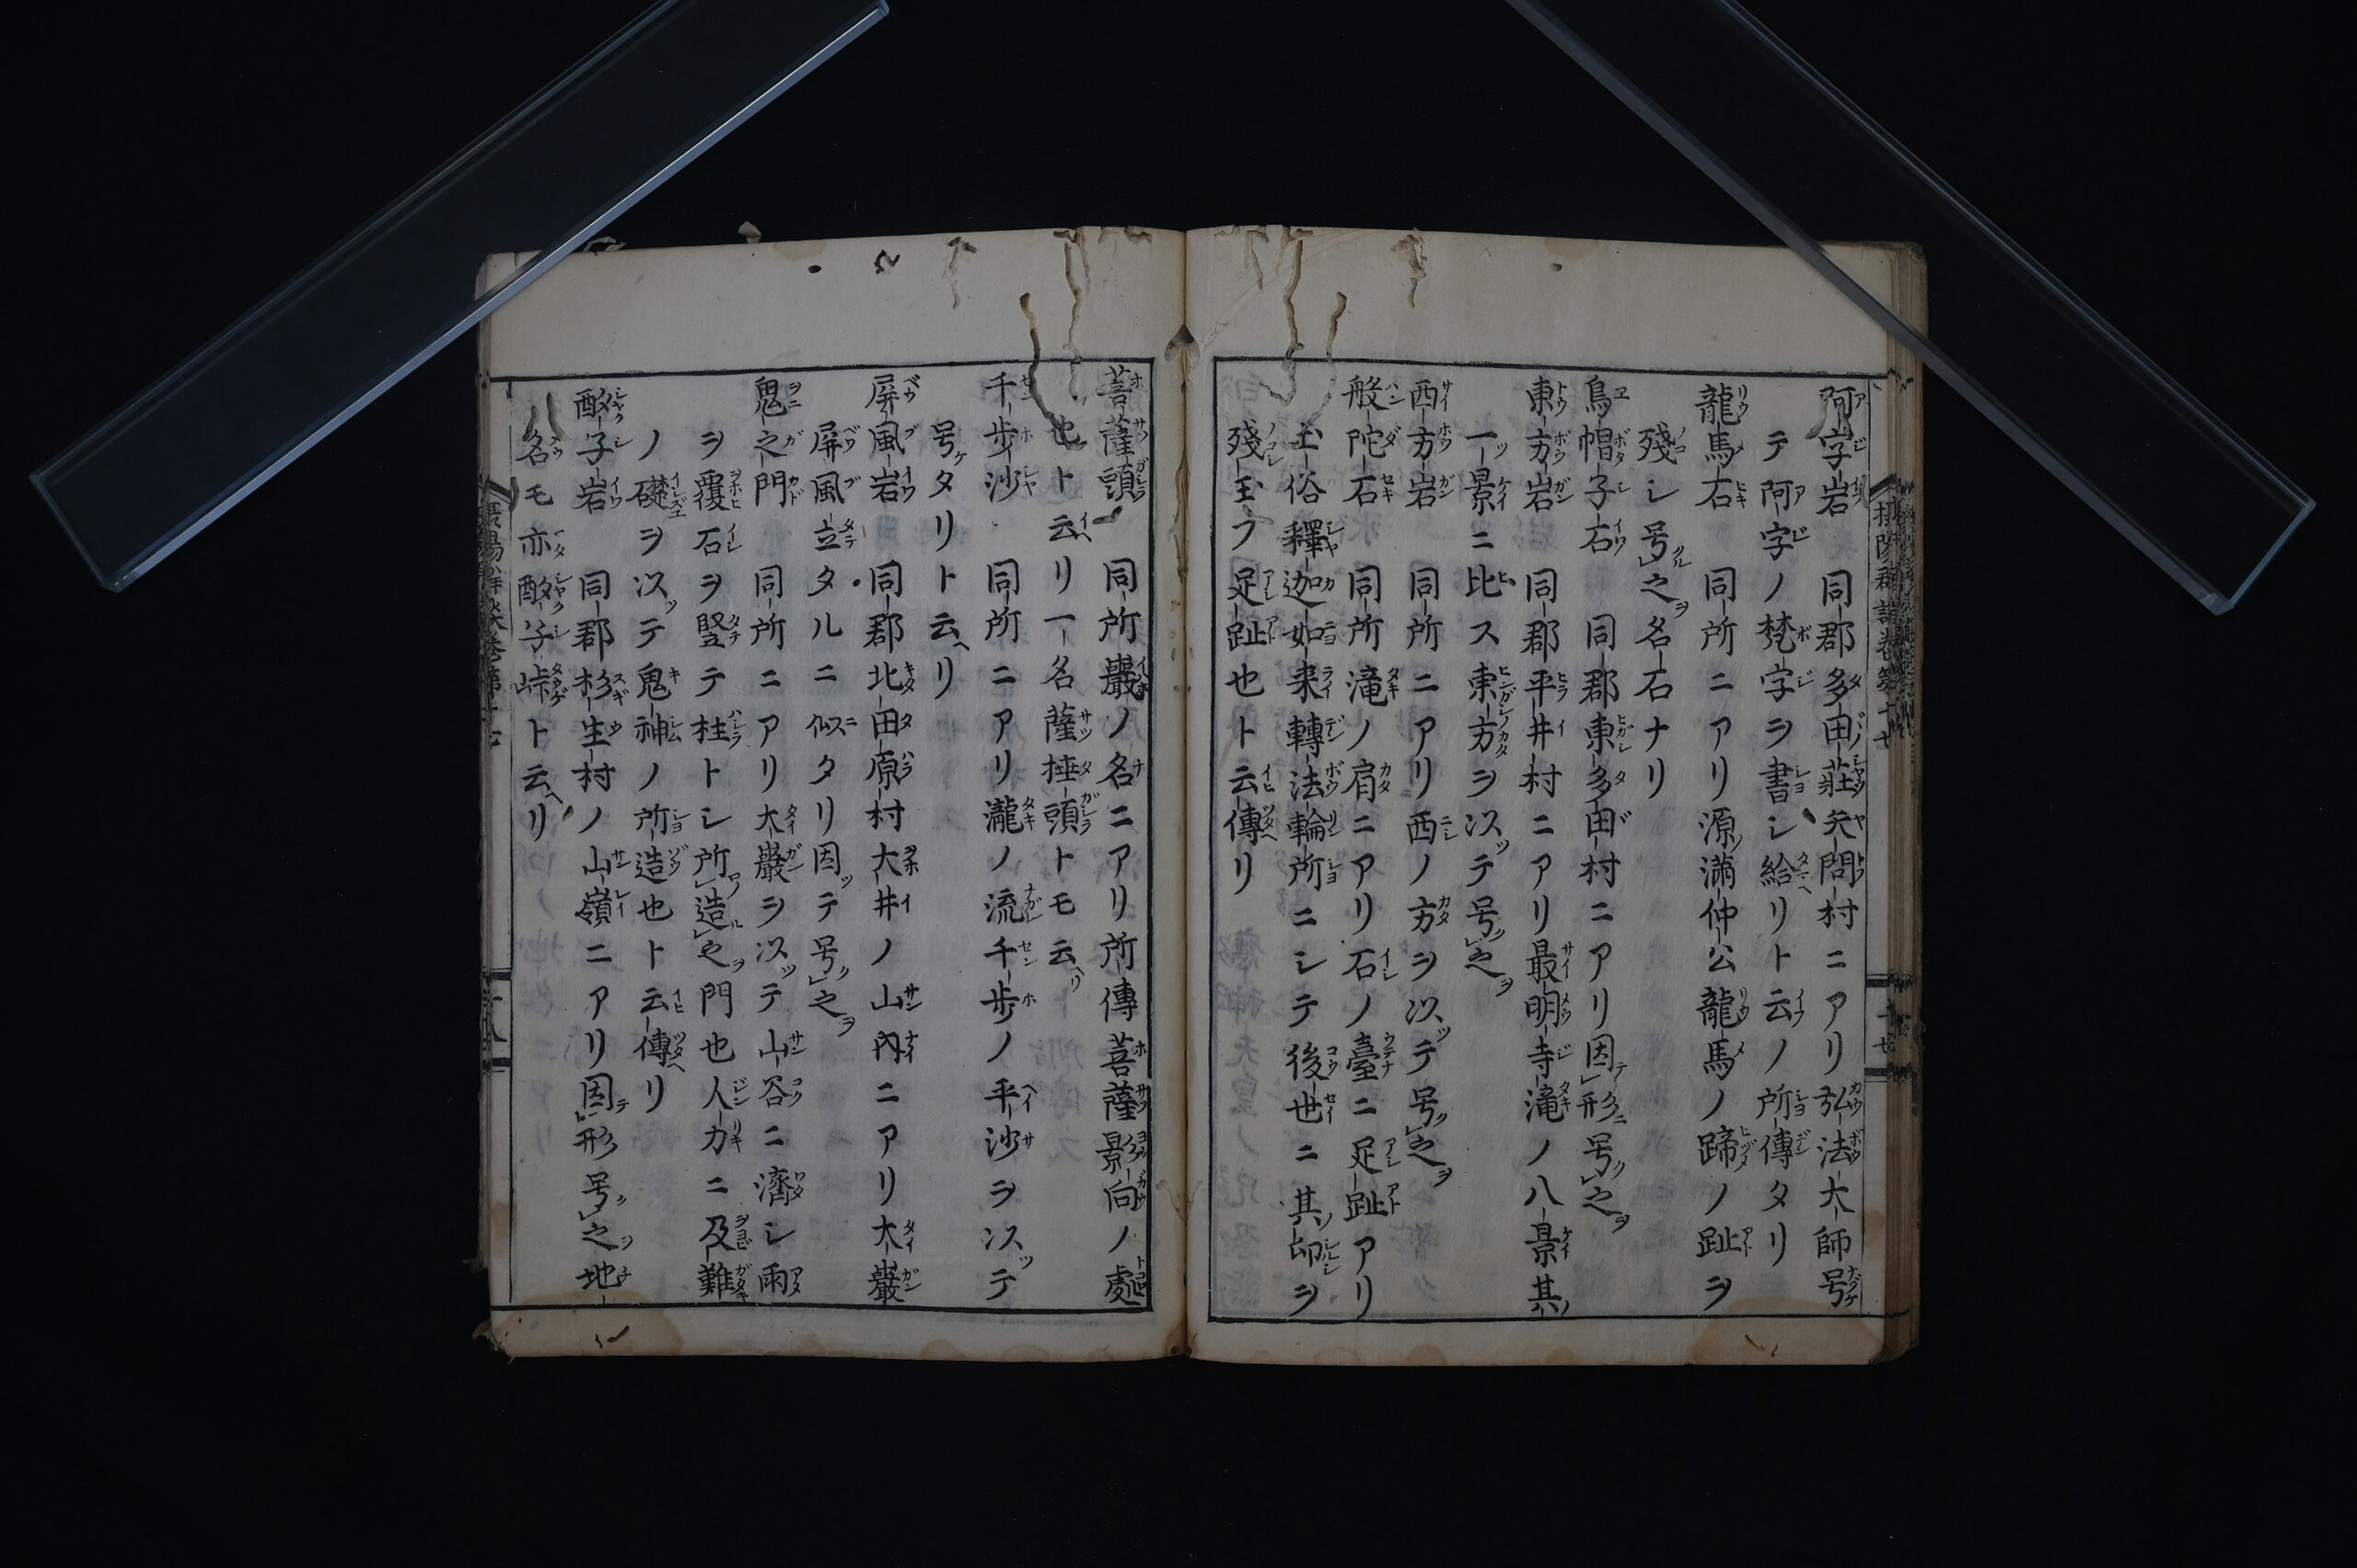 阿字岩　同郡多田莊矢問村ニアリ弘法大師号
テ阿字ノ梵字ヲ書シ給リト云ノ所傳タリ
龍馬石　同所ニアリ源滿仲公龍馬ノ蹄ノ趾ヲ
殘シ号之名石ナリ
烏帽子石　同郡東多田村ニアリ因形号之
東方岩　同郡平井村ニアリ最明寺滝ノ八景其
一景ニ比ス東方ヲ以テ号之
西方岩　同所ニアリ西ノ方ヲ以テ号之
般陀石　同所滝ノ肩ニアリ石ノ臺ニ足趾アリ
土俗釋迦如来轉法輪所ニシテ後世ニ其印ヲ
殘玉フ足趾也ト云傳リ
菩薩頭　同所巖ノ名ニアリ所傳菩薩影向ノ處
也ト云リ一名薩埵頭トモ云
千歩沙　同所ニアリ瀧ノ流千歩ノ平沙ヲ以テ
号タリト云リ
屏風岩　同郡北田原村大井ノ山内ニアリ大巖
屏風立タルニ似タリ因テ号之
鬼之門　同所ニアリ大巖ヲ以テ山谷ニ濟シ雨
ヲ覆石ヲ竪テ柱トシ所造之門也人力ニ及難
ノ礎ヲ以テ鬼神ノ所造也ト云傳リ
酩子岩　同郡杉生村ノ山嶺ニアリ因形号之地
名モ亦酩子峠ト云リ